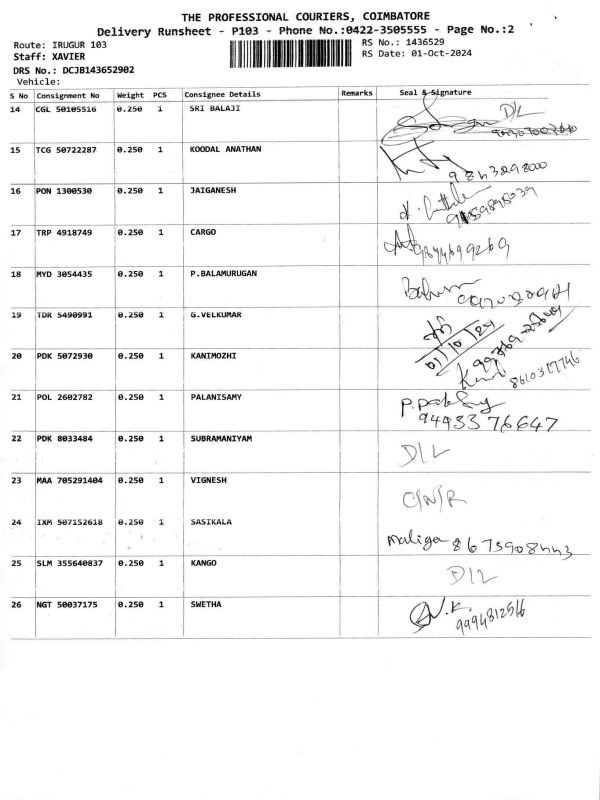 THE PROFESSIONAL COURIERS, COIMBATORE
Delivery Runsheet - P103 - Phone No.:0422-3505555 - Page No.:2
Route: IRUGUR 103
RS No.: 1436529
Staff: XAVIER
RS Date: 01-Oct-2024
DRS No.: DCJB143652902
Vehicle:
S No Consignment No Weight PCS Consignee Details Remarks Seal & Signature
14 CGL 50105516 0.250 1 SRI BALAJI D/L
15 TCG 50722287 0.250 1 KOODAL ANATHAN
16 PON 1300530 0.250 1 JAIGANESH
17 TRP 4918749 0.250 1 CARGO
18 MYD 3054435 0.250 1 P.BALAMURUGAN
19 TDR 5490991 0.250 1 G.VELKUMAR
01/10/24
20 PDK 5072930 0.250 1 KANIMOZHI
21 POL 2602782 0.250 1 PALANISAMY
9493376647
22 PDK 8033484 0.250 1 SUBRAMANIYAM D/L
23 MAA 705291404 0.250 1 VIGNESH C/N/R
24 IXM 507152618 0.250 1 SASIKALA maliga
25 SLM 355640837 0.250 1 KANGO D/L
26 NGT 50037175 0.250 1 SWETHA N.K.
9994812516